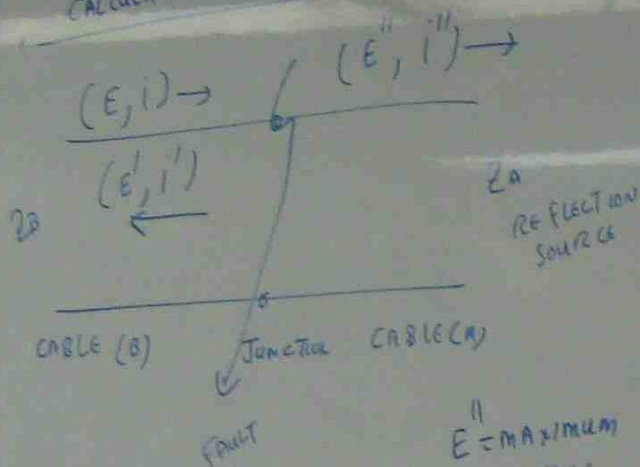 CALCUL
(E, i) →
(E'', i'') →
(E', i')
ZB
ZA
REFLECTION
SOURCE
CABLE (B)
JUNCTION
CABLE (A)
FAULT
E'' = MAXIMUM